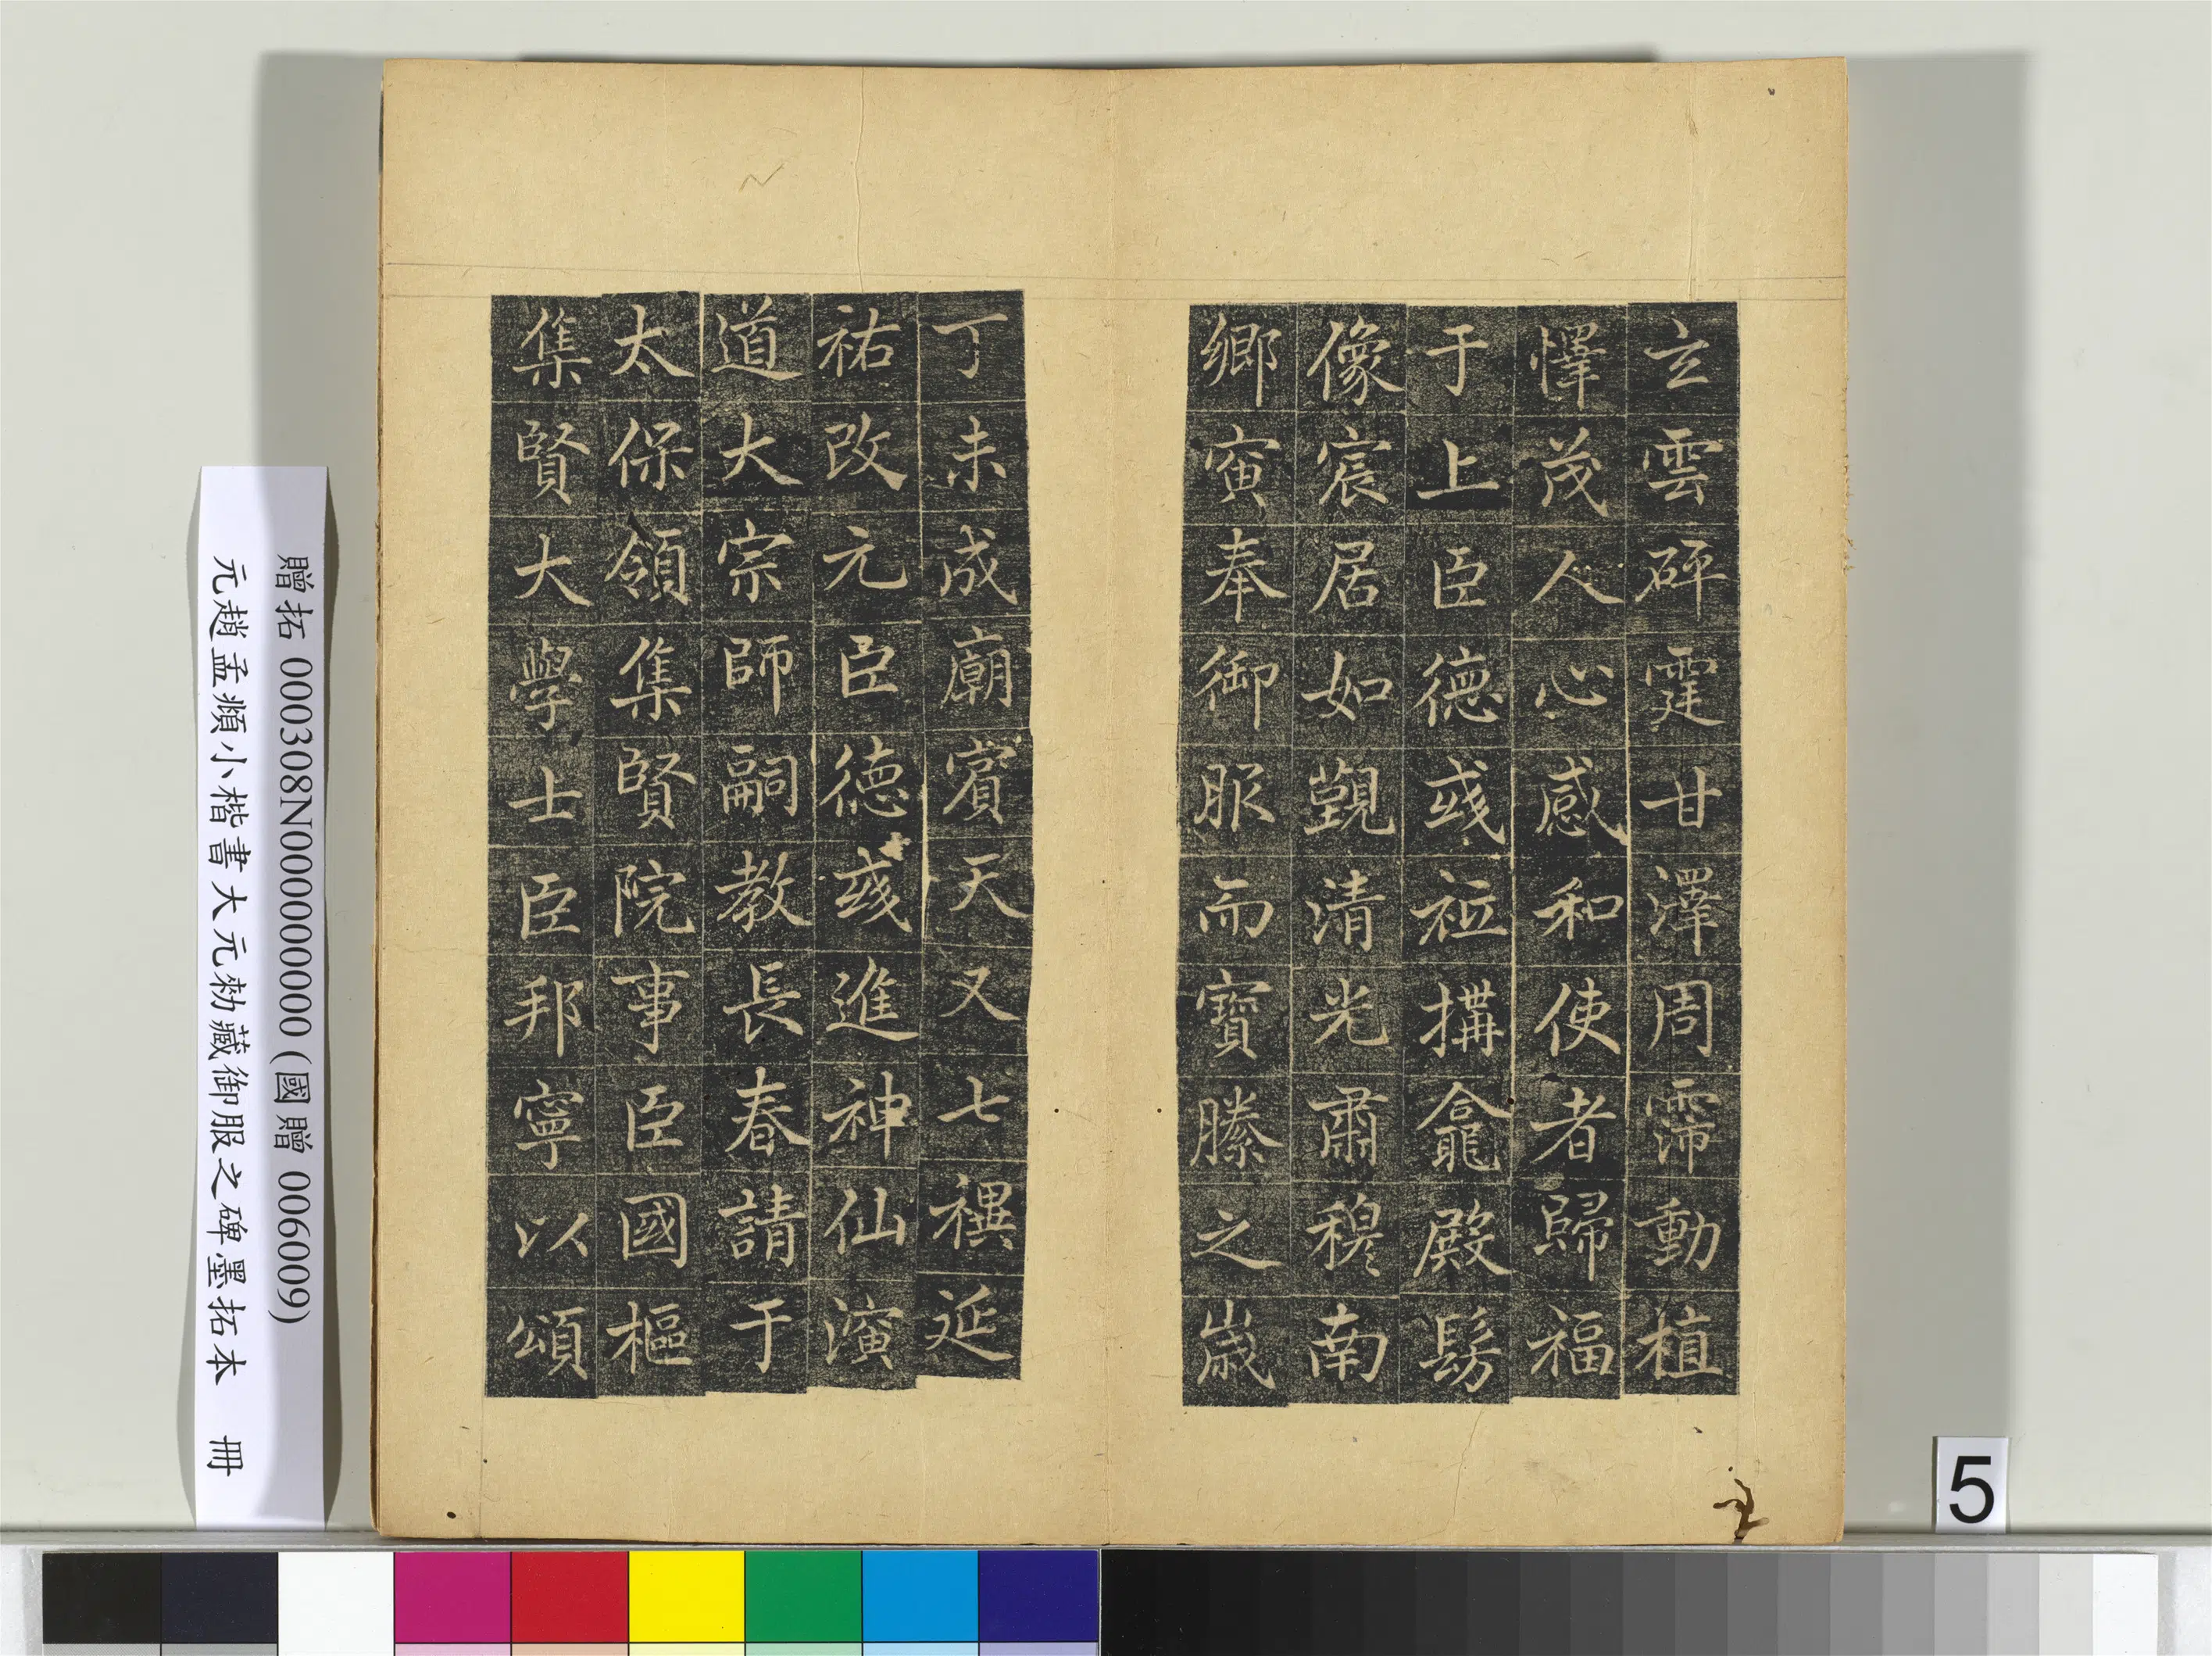 玄雲砰霆甘澤周霈動植
懌茂人心感和使者歸福
于上臣德彧祗搆龕殿髣
像宸居如覲清光肅穆南
鄉寅奉御服而寶縢之歲
丁未成廟賓天又七禩延
祐改元臣德彧進神仙演
道大宗師嗣教長春請于
太保領集賢院事臣國樞
集賢大學士臣邦寧以頌
贈拓 000308N000000000 (國贈 006009)
元趙孟頫小楷書大元勑藏御服之碑墨拓本 冊
5